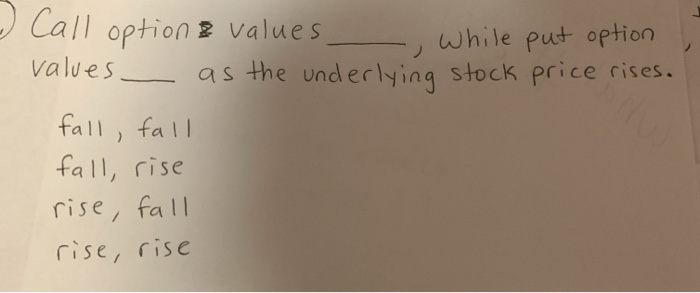 Call option values ____, while put option
values ____ as the underlying stock price rises.
fall, fall
fall, rise
rise, fall
rise, rise